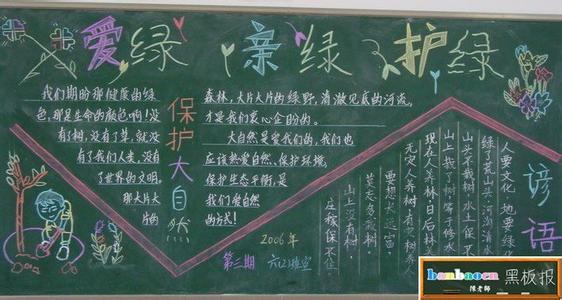 爱绿 亲绿 护绿
我们期盼那健康的绿
色，那是生命的颜色啊！没
有了树，没有了草，就没
有了我们人类，没有
了世界的文明。
那大片大
片的
保护大自然
森林，大片大片的绿野，清澈见底的河流，
才是我们衷心企盼的。
大自然是爱我们的，我们也
应该热爱自然、保护环境，
保护生态平衡，是
我们爱自然
的方式！
2006年
第三期
谚语
人要文化，地要绿化
绿了荒山头，河清清水
山头不栽树，水土保不
山上栽了树，等于修水
现在人养林，日后林
无灾人养树，有灾树养人
要想大地富
莫忘多栽树
山上没有树
庄稼保不住
banbaoen
黑板报
陈老师